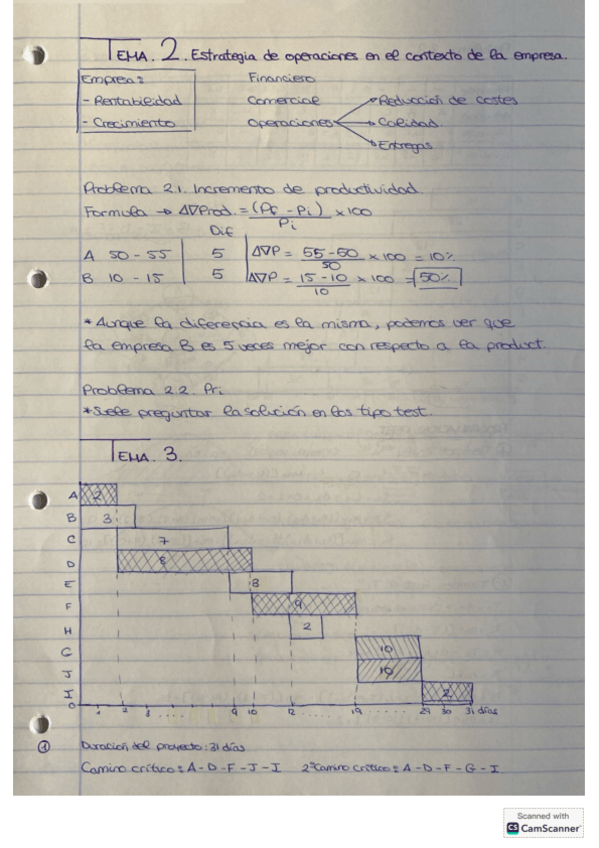 TEMA. 2. Estrategia de operaciones en el contexto de la empresa.
Empresa:
- Rentabilidad
- Crecimiento
Financiero
Comercial
Operaciones
Reducción de costes
Calidad.
Entregas
Problema 2.1. Incremento de productividad.
Formula → Δ∇Prod. = (Pf - Pi) / Pi x 100
Dif
A 50 - 55 5 Δ∇P = 55-50 / 50 x 100 = 10%
B 10 - 15 5 Δ∇P = 15-10 / 10 x 100 = 50%
* Aunque la diferencia es la misma, podemos ver que
la empresa B es 5 veces mejor con respecto a la product.
Problema 2.2. Pr.
* Suele preguntar la solución en los tipo test.
TEMA. 3.
A 2
B 3
C 7
D 8
E 3
F 9
H 2
G 10
J 10
I 2
0 1 2 3 ....... 9 10 12 ....... 19 ....... 29 30 31 días
① Duración del proyecto: 31 días
Camino crítico: A - D - F - J - I 2º Camino crítico: A - D - F - G - I
Scanned with
CS CamScanner